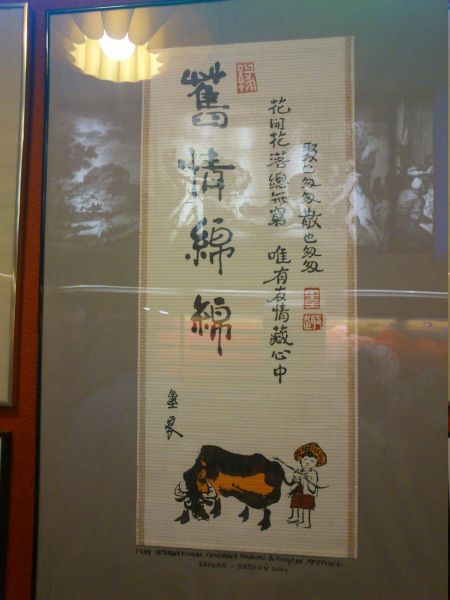 聚也匆匆散也匆匆
花開花落總無窮 唯有友情藏心中
舊情綿綿
INTERNATIONAL CHILDREN'S FOLKLORE & FOLKGAME FESTIVAL
TAIWAN - SIERPIEŃ 2001